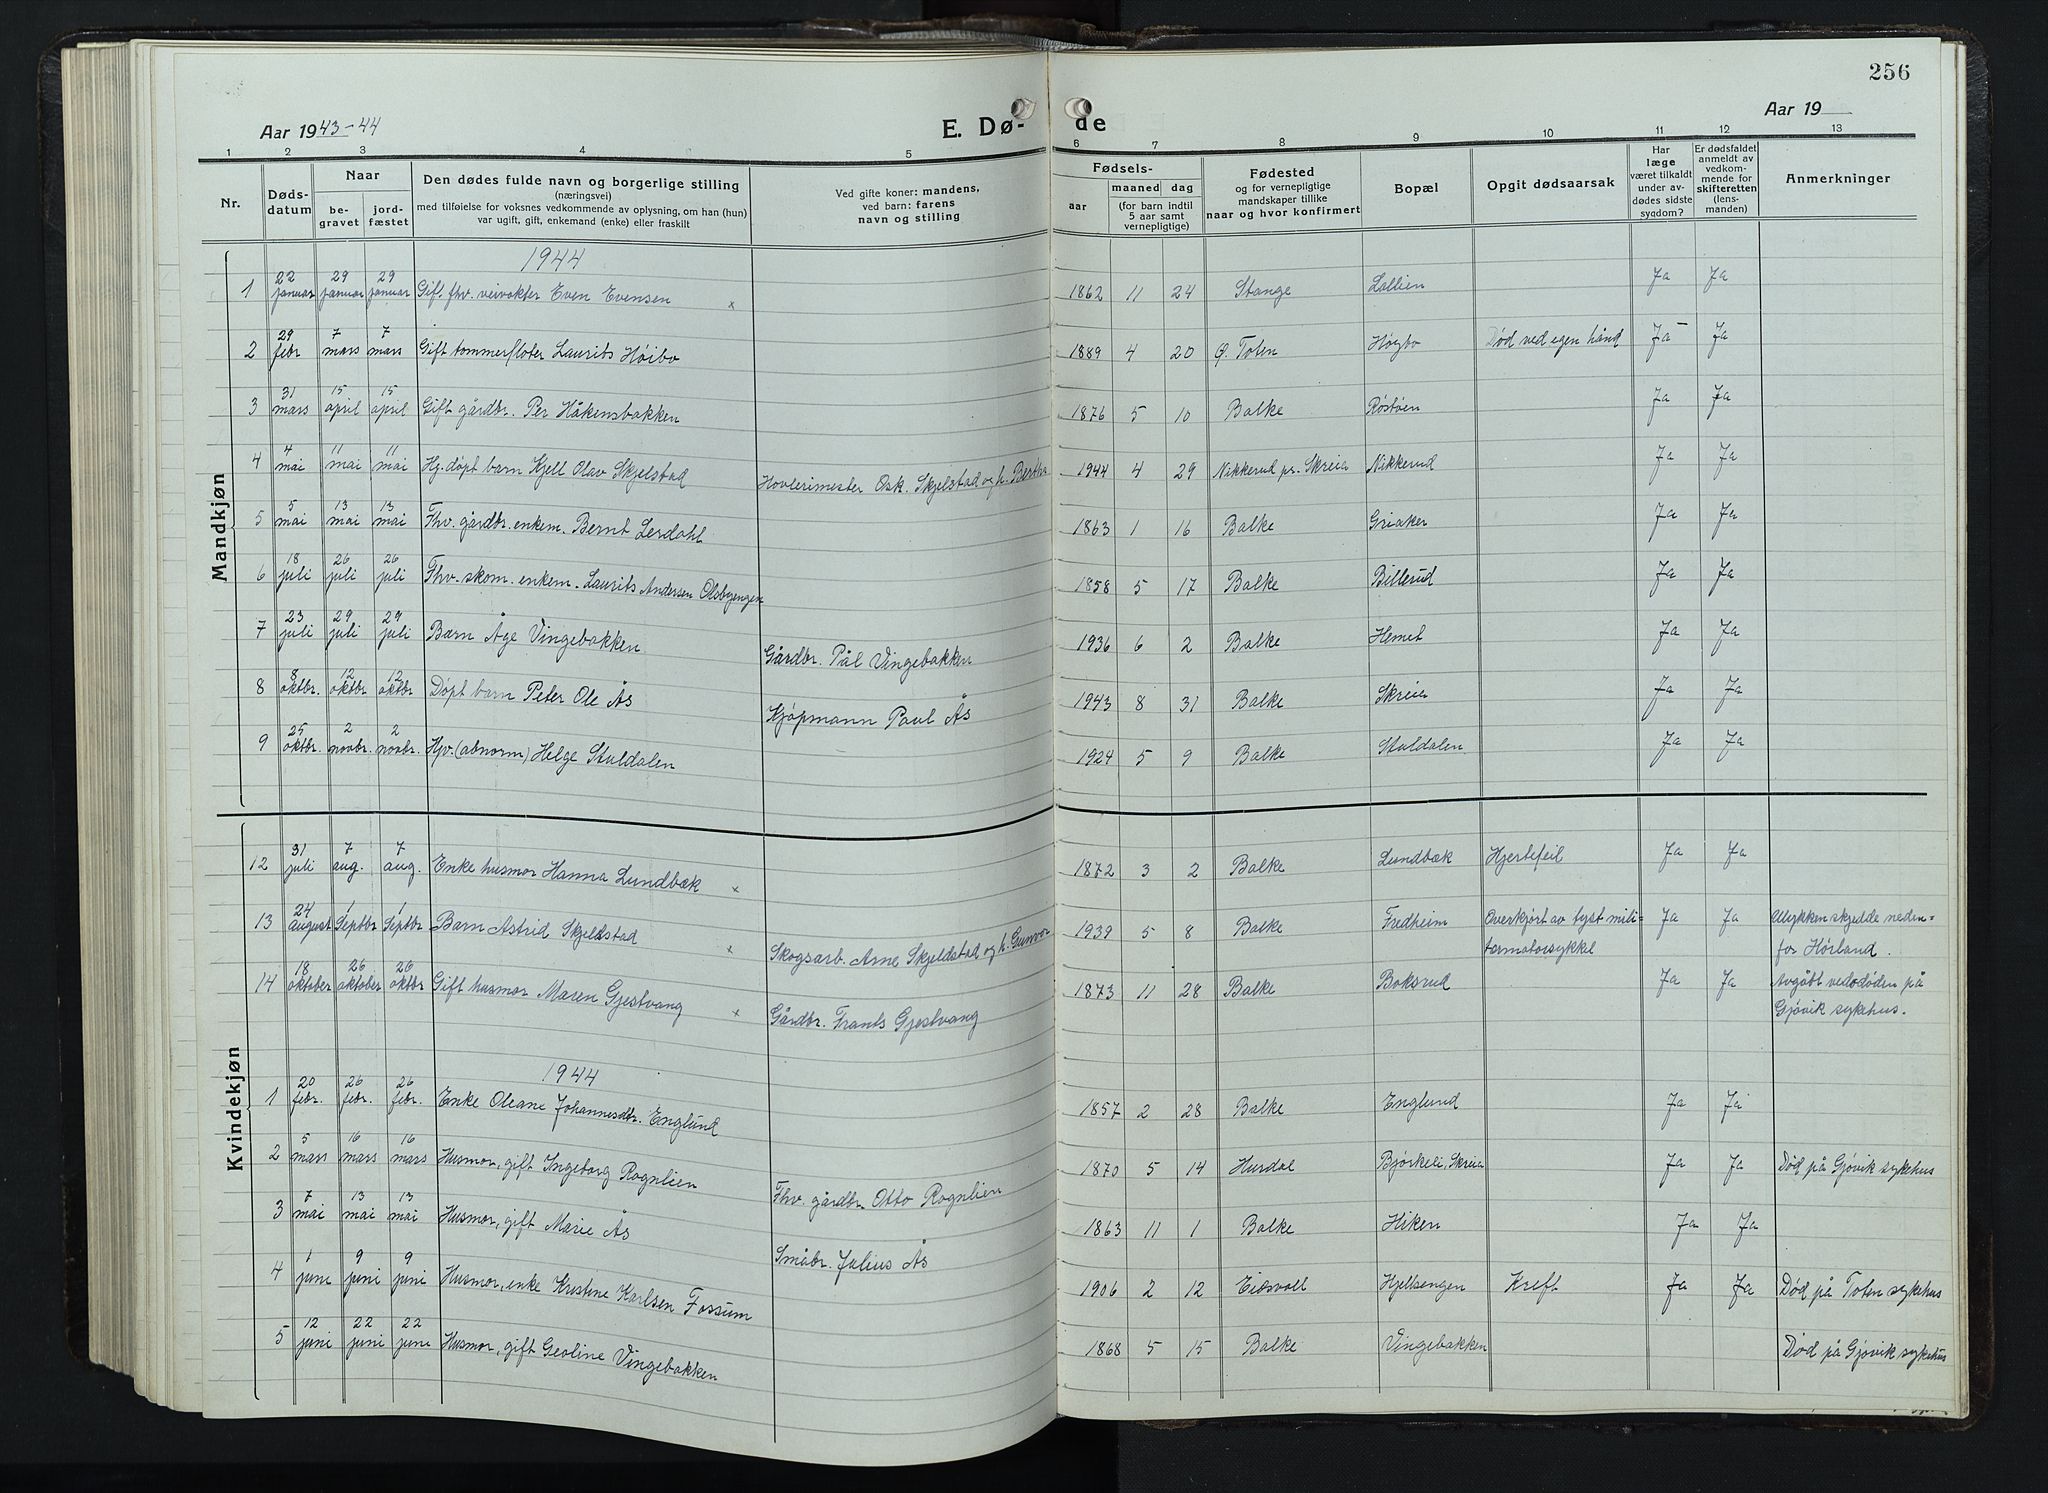 256
Aar 1943-44
E. Dø-
de
Aar 19
1 2 3 4 5 6 7 8 9 10 11 12 13
Nr.
Døds-
datum
Naar
be-
gravet
jord-
fæstet
Den dødes fulde navn og borgerlige stilling
(næringsvei)
med tilføielse for voksnes vedkommende av oplysning, om han (hun)
var ugift, gift, enkemand (enke) eller fraskilt
Ved gifte koner: mandens,
ved barn: farens
navn og stilling
Fødsels-
aar
maaned
dag
(for barn indtil
5 aar samt
vernepligtige)
Fødested
og for vernepligtige
mandskaper tillike
naar og hvor konfirmert
Bopæl
Opgit dødsaarsak
Har
læge
været tilkaldt
under av-
dødes sidste
sygdom?
Er dødsfaldet
anmeldt av
vedkom-
mende for
skifteretten
(lens-
manden)
Anmerkninger
Mandkjøn
1944
1 22 januar 29 januar 29 januar Gift fhv. veivokter Even Evensen x 1862 11 24 Stange Lallien Ja Ja
2 29 febr 7 mars 7 mars Gift tømmerfløter Laurits Høibo 1889 4 20 Ø. Toten Høgbo Død ved egen hånd Ja Ja
3 31 mars 15 april 15 april Gift gårdbr. Per Håkensbakken 1876 5 10 Balke Røstøen Ja Ja
4 4 mai 11 mai 11 mai Hj. døpt barn Kjell Olav Skjelstad Høvlerimester Osk. Skjelstad og h. Bertha 1944 4 29 Nikkerud pr. Skreia Nikkerud Ja Ja
5 5 mai 13 mai 13 mai Fhv. gårdbr. enkem. Bernt Lerdahl 1863 1 16 Balke Griaker Ja Ja
6 18 juli 26 juli 26 juli Fhv. skom. enkem. Laurits Andersen Olsbyengen 1858 5 17 Balke Billerud Ja Ja
7 23 juli 29 juli 29 juli Barn Åge Vingebakken Gårdbr. Pål Vingebakken 1936 6 2 Balke Hemet Ja Ja
8 8 oktbr. 12 oktbr 12 oktbr Døpt barn Peter Ole Ås Kjøpmann Paul Ås 1943 8 31 Balke Skreia Ja Ja
9 25 oktbr. 2 novbr. 2 novbr. Hjv. (abnorm) Helge Stuldalen 1924 5 9 Balke Stuldalen Ja Ja
Kvindekjøn
12 31 juli 7 aug. 7 aug. Enke husmor Hanna Lundbæk x 1872 3 2 Balke Lundbæk Hjertefeil Ja Ja
13 24 august 1 Septbr 1 Septbr Barn Astrid Skjeldstad x Skogsarb. Arne Skjeldstad og h. Gunvor 1939 5 8 Balke Fredheim Overkjørt av tysk mili- Ja Ja Ulykken skjedde neden-
tærmotorsykkel for Hørland.
14 18 oktober 26 oktober 26 oktbr Gift husmor Maren Gjestvang x Gårdbr. Frants Gjestvang 1873 11 28 Balke Boksrud Ja Ja Avgått ved døden på
Gjøvik sykehus.
1944
1 20 febr. 26 febr. 26 febr. Enke Oleane Johannesdtr. Englund 1857 2 28 Balke Englund Ja Ja
2 5 mars 16 mars 16 mars Husmor, gift Ingeborg Rognlien Fhv. gårdbr. Otto Rognlien 1870 5 14 Hurdal Bjørkeli, Skreia Ja Ja Død på Gjøvik sykehus
3 7 mai 13 mai 13 mai Husmor, gift Marie Ås Småbr. Julius Ås 1863 11 1 Balke Hiken Ja Ja
4 1 juni 9 juni 9 juni Husmor, enke Kristine Karlsen Fossum 1906 2 12 Eidsvoll Kjelsengen Kreft Ja Ja Død på Toten sykehus
5 12 juni 22 juni 22 juni Husmor, gift Geoline Vingebakken 1868 5 15 Balke Vingebakken Død på Gjøvik sykehus